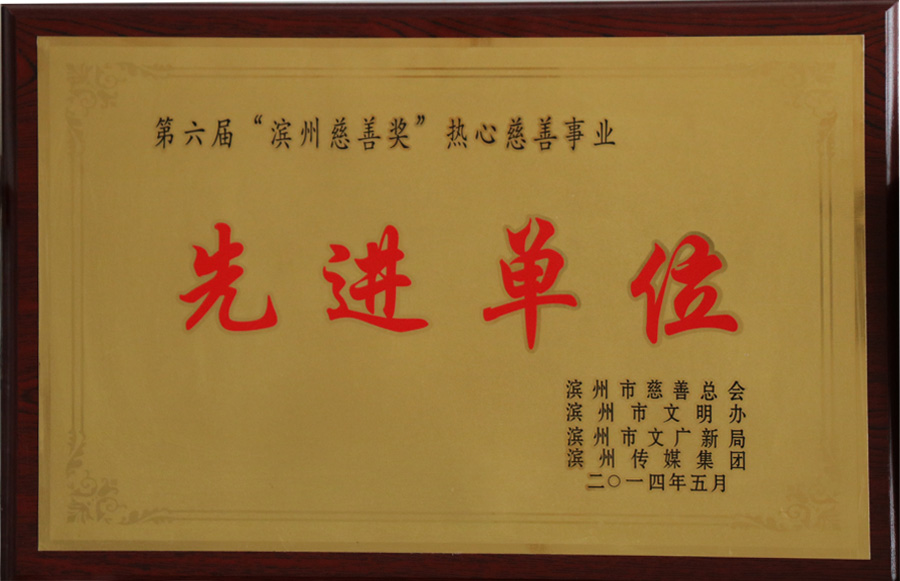 第六届“滨州慈善奖”热心慈善事业
先进单位
滨州市慈善总会
滨州市文明办
滨州市文广新局
滨州传媒集团
二〇一四年五月